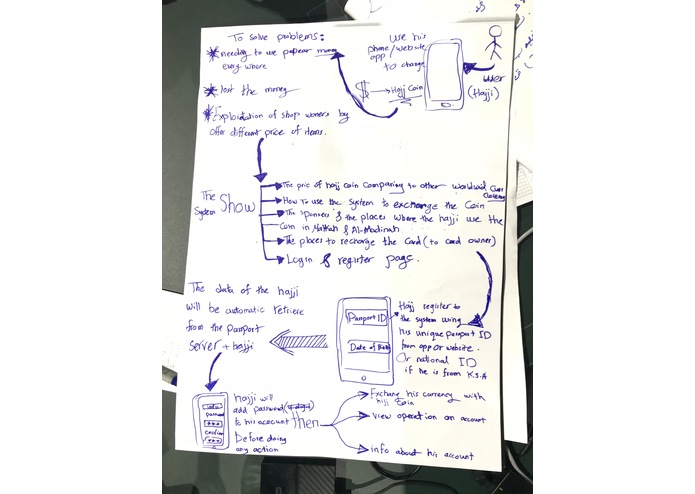 To solve problems:
* needing to use papear money
every where
* lost the money
* Exploidation of shop woners by
offer different price of items.
use his
phone/website
app
to change
$ → Hajj Coin
user
(Hajji)
The
System
Show
The pric of hajj coin comparing to other worldwid
currency
How To use the system to exchange the Coin
The sponsers & the places where the hajji use the
Coin in Makkah & Al-Madinah
The places to recharge the card (to card owner)
Login & register page.
The data of the hajji
will be automatic retriere
from the passport
server + hajji
Passport ID
Date of Birth
Hajj register to
the system using
his unique passport ID
from app or website.
Or national ID
if he is from K.S.A
info
password
***
confirm
***
hajji will
add password
to his account
Before doing
any action
Then
Exchang his currency with
hajj Coin
view operation on account
info about his account